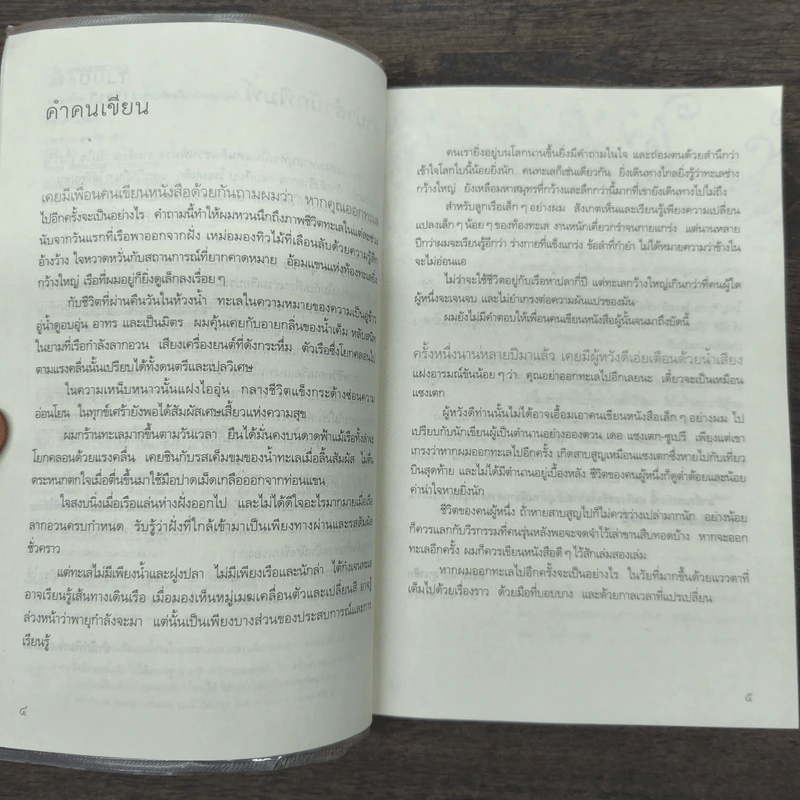 คำคนเขียน
เคยมีเพื่อนคนเขียนหนังสือด้วยกันถามผมว่า หากคุณออกทะเล
ไปอีกครั้งจะเป็นอย่างไร คำถามนี้ทำให้ผมหวนนึกถึงภาพชีวิตทะเลในแต่ละช่วง
นับจากวันแรกที่เรือพาออกจากฝั่ง เหม่อมองทิวไม้ที่เลือนลับด้วยความรู้สึก
อ้างว้าง ใจหวาดหวั่นกับสถานการณ์ที่ยากคาดหมาย อ้อมแขนแห่งท้องทะเล
กว้างใหญ่ เรือที่ผมอยู่ก็ยิ่งดูเล็กลงเรื่อยๆ
กับชีวิตที่ผ่านคืนวันในห้วงน้ำ ทะเลในความหมายของความเป็นอู่ข้าว
อู่น้ำดูอบอุ่น อาทร และเป็นมิตร ผมคุ้นเคยกับอายกลิ่นของน้ำเค็ม หลับสนิท
ในยามที่เรือกำลังลากอวน เสียงเครื่องยนต์ที่ดังกระหึ่ม ตัวเรือซึ่งโยกคลอนไป
ตามแรงคลื่นนั้นเปรียบได้ทั้งดนตรีและเปลวิเศษ
ในความเหน็บหนาวนั้นแฝงไออุ่น กลางชีวิตแข็งกระด้างซ่อนความ
อ่อนโยน ในทุกข์เศร้ายังพอได้สัมผัสเศษเสี้ยวแห่งความสุข
ผมกร้านทะเลมากขึ้นตามวันเวลา ยืนได้มั่นคงบนดาดฟ้าแม้เรือทั้งลำจะ
โยกคลอนด้วยแรงคลื่น เคยชินกับรสเค็มขมของน้ำทะเลเมื่อลิ้นสัมผัส ไม่ตื่น
ตระหนกตกใจเมื่อตื่นขึ้นมาใช้มือปาดเม็ดเกลือออกจากท่อนแขน
ใจสงบนิ่งเมื่อเรือแล่นห่างฝั่งออกไป และไม่ได้ดีใจอะไรมากมายเมื่อเรือ
ลากอวนครบกำหนด รับรู้ว่าฝั่งที่ใกล้เข้ามาเป็นเพียงทางผ่านและรสสัมผัส
ชั่วคราว
แต่ทะเลไม่มีเพียงน้ำและฝูงปลา ไม่มีเพียงเรือและนักล่า ไต้ก๋งเจนทะเล
อาจเรียนรู้เส้นทางเดินเรือ เมื่อมองเห็นหมู่เมฆเคลื่อนตัวและเปลี่ยนสี อาจรู้
ล่วงหน้าว่าพายุกำลังจะมา แต่นั้นเป็นเพียงบางส่วนของประสบการณ์และการ
เรียนรู้
๔
คนเรายิ่งอยู่บนโลกนานขึ้นยิ่งมีคำถามในใจ และถ่อมตนด้วยสำนึกว่า
เข้าใจโลกใบนี้น้อยยิ่งนัก คนทะเลก็เช่นเดียวกัน ยิ่งเดินทางไกลยิ่งรู้ว่าทะเลช่าง
กว้างใหญ่ ยังเหลือมหาสมุทรที่กว้างและลึกกว่านี้มากที่เขายังเดินทางไปไม่ถึง
สำหรับลูกเรือเล็กๆ อย่างผม สังเกตเห็นและเรียนรู้เพียงความเปลี่ยน
แปลงเล็กๆ น้อยๆ ของท้องทะเล งานหนักเคี่ยวกรำจนกายแกร่ง แต่นานหลาย
ปีกว่าผมจะเรียนรู้อีกว่า ร่างกายที่แข็งแกร่ง ข้อลำที่กำยำ ไม่ได้หมายความว่าข้างใน
จะไม่อ่อนแอ
ไม่ว่าจะใช้ชีวิตอยู่กับเรือหาปลากี่ปี แต่ทะเลกว้างใหญ่เกินกว่าที่คนผู้ใด
ผู้หนึ่งจะเจนจบ และไม่ยำเกรงต่อความผันแปรของมัน
ผมยังไม่มีคำตอบให้เพื่อนคนเขียนหนังสือผู้นั้นจนมาถึงบัดนี้
ครั้งหนึ่งนานหลายปีมาแล้ว เคยมีผู้หวังดีเอ่ยเตือนด้วยน้ำเสียง
แฝงอารมณ์ขันน้อยๆ ว่า คุณอย่าออกทะเลไปอีกเลยนะ เดี๋ยวจะเป็นเหมือน
แซงเตก
ผู้หวังดีท่านนั้นไม่ได้อาจเอื้อมเอาคนเขียนหนังสือเล็กๆ อย่างผม ไป
เปรียบกับนักเขียนผู้เป็นตำนานอย่างอองตวน เดอ แซงเตก-ซูเปรี เพียงแต่เขา
เกรงว่าหากผมออกทะเลไปอีกครั้ง เกิดสาบสูญเหมือนแซงเตกซึ่งหายไปกับเที่ยว
บินสุดท้าย และไม่ได้มีตำนานอยู่เบื้องหลัง ชีวิตของคนผู้หนึ่งก็ดูต่ำต้อยและน้อย
ค่าน่าใจหายยิ่งนัก
ชีวิตของคนผู้หนึ่ง ถ้าหายสาบสูญไปก็ไม่ควรว่างเปล่ามากนัก อย่างน้อย
ก็ควรแลกกับวีรกรรมที่คนรุ่นหลังพอจะจดจำไว้เล่าขานสืบทอดบ้าง หากจะออก
ทะเลอีกครั้ง ผมก็ควรเขียนหนังสือดีๆ ไว้สักเล่มสองเล่ม
หากผมออกทะเลไปอีกครั้งจะเป็นอย่างไร ในวัยที่มากขึ้นด้วยแววตาที่
เต็มไปด้วยเรื่องราว ด้วยมือที่บอบบาง และด้วยกาลเวลาที่แปรเปลี่ยน
๕